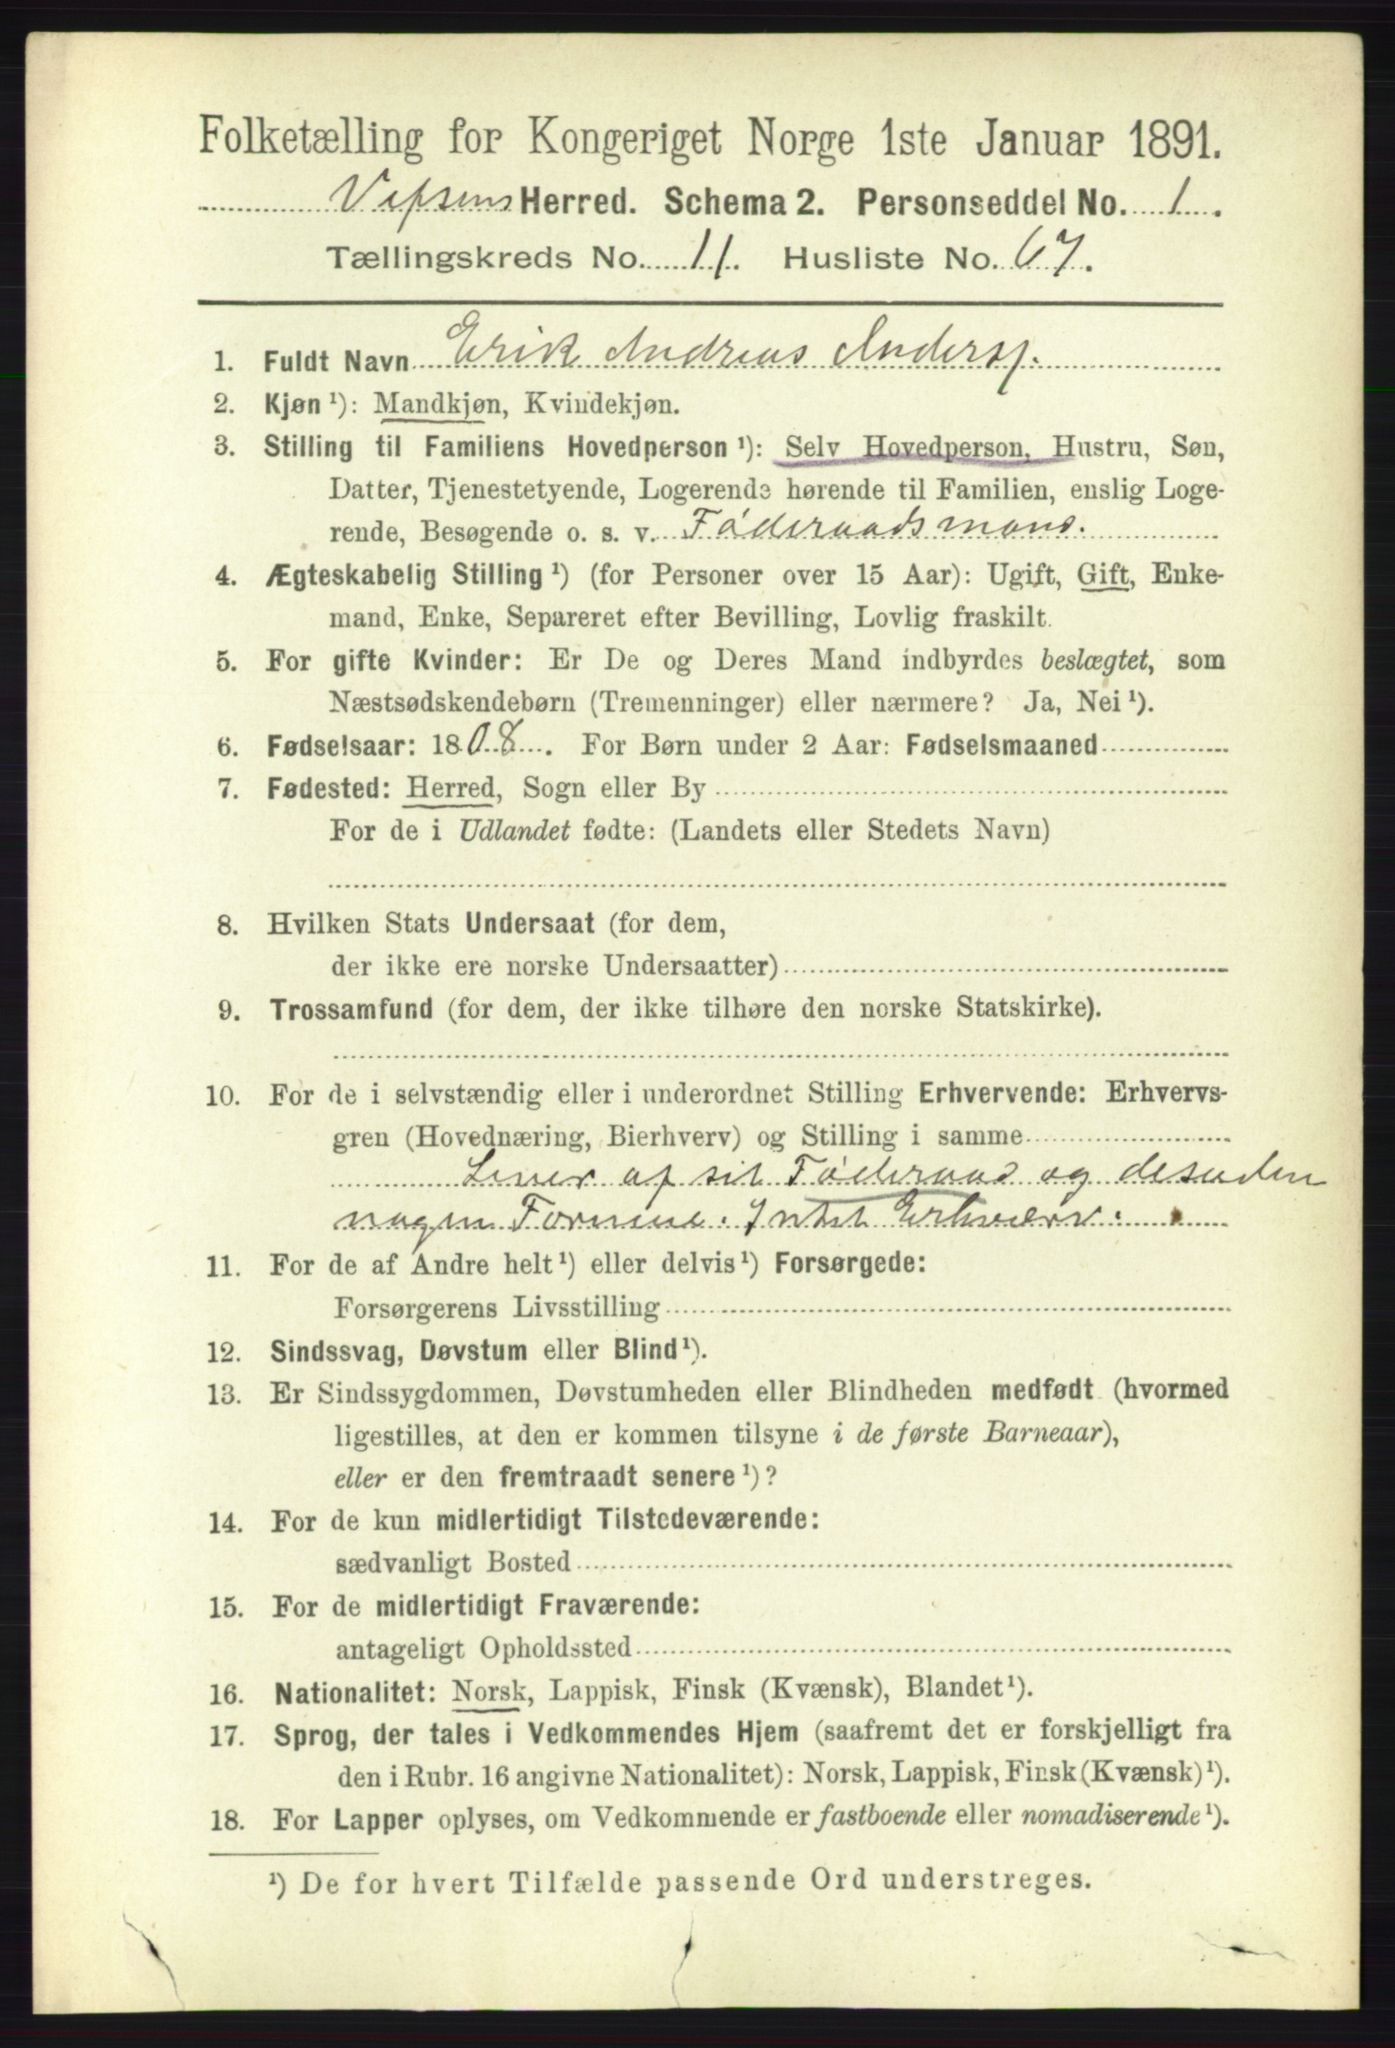 Folketælling for Kongeriget Norge 1ste Januar 1891.
Vefsens Herred. Schema 2. Personseddel No. 1.
Tællingskreds No. 11. Husliste No. 67.
1. Fuldt Navn Erik Andreas Andersp.
2. Kjøn ¹): Mandkjøn, Kvindekjøn.
3. Stilling til Familiens Hovedperson ¹): Selv Hovedperson, Hustru, Søn,
Datter, Tjenestetyende, Logerende hørende til Familien, enslig Loge-
rende, Besøgende o. s. v. Föderaadsmand.
4. Ægteskabelig Stilling ¹) (for Personer over 15 Aar): Ugift, Gift, Enke-
mand, Enke, Separeret efter Bevilling, Lovlig fraskilt.
5. For gifte Kvinder: Er De og Deres Mand indbyrdes beslægtet, som
Næstsødskendebørn (Tremenninger) eller nærmere? Ja, Nei ¹).
6. Fødselsaar: 1808. For Børn under 2 Aar: Fødselsmaaned
7. Fødested: Herred, Sogn eller By
For de i Udlandet fødte: (Landets eller Stedets Navn)
8. Hvilken Stats Undersaat (for dem,
der ikke ere norske Undersaatter)
9. Trossamfund (for dem, der ikke tilhøre den norske Statskirke).
10. For de i selvstændig eller i underordnet Stilling Erhvervende: Erhvervs-
gren (Hovednæring, Bierhverv) og Stilling i samme
Lever af sit Föderaad og desuden
nogen Formue. Intet Erhverv.
11. For de af Andre helt ¹) eller delvis ¹) Forsørgede:
Forsørgerens Livsstilling
12. Sindssvag, Døvstum eller Blind ¹).
13. Er Sindssygdommen, Døvstumheden eller Blindheden medfødt (hvormed
ligestilles, at den er kommen tilsyne i de første Barneaar),
eller er den fremtraadt senere ¹)?
14. For de kun midlertidigt Tilstedeværende:
sædvanligt Bosted
15. For de midlertidigt Fraværende:
antageligt Opholdssted
16. Nationalitet: Norsk, Lappisk, Finsk (Kvænsk), Blandet ¹).
17. Sprog, der tales i Vedkommendes Hjem (saafremt det er forskjelligt fra
den i Rubr. 16 angivne Nationalitet): Norsk, Lappisk, Finsk (Kvænsk) ¹).
18. For Lapper oplyses, om Vedkommende er fastboende eller nomadiserende ¹).
¹) De for hvert Tilfælde passende Ord understreges.